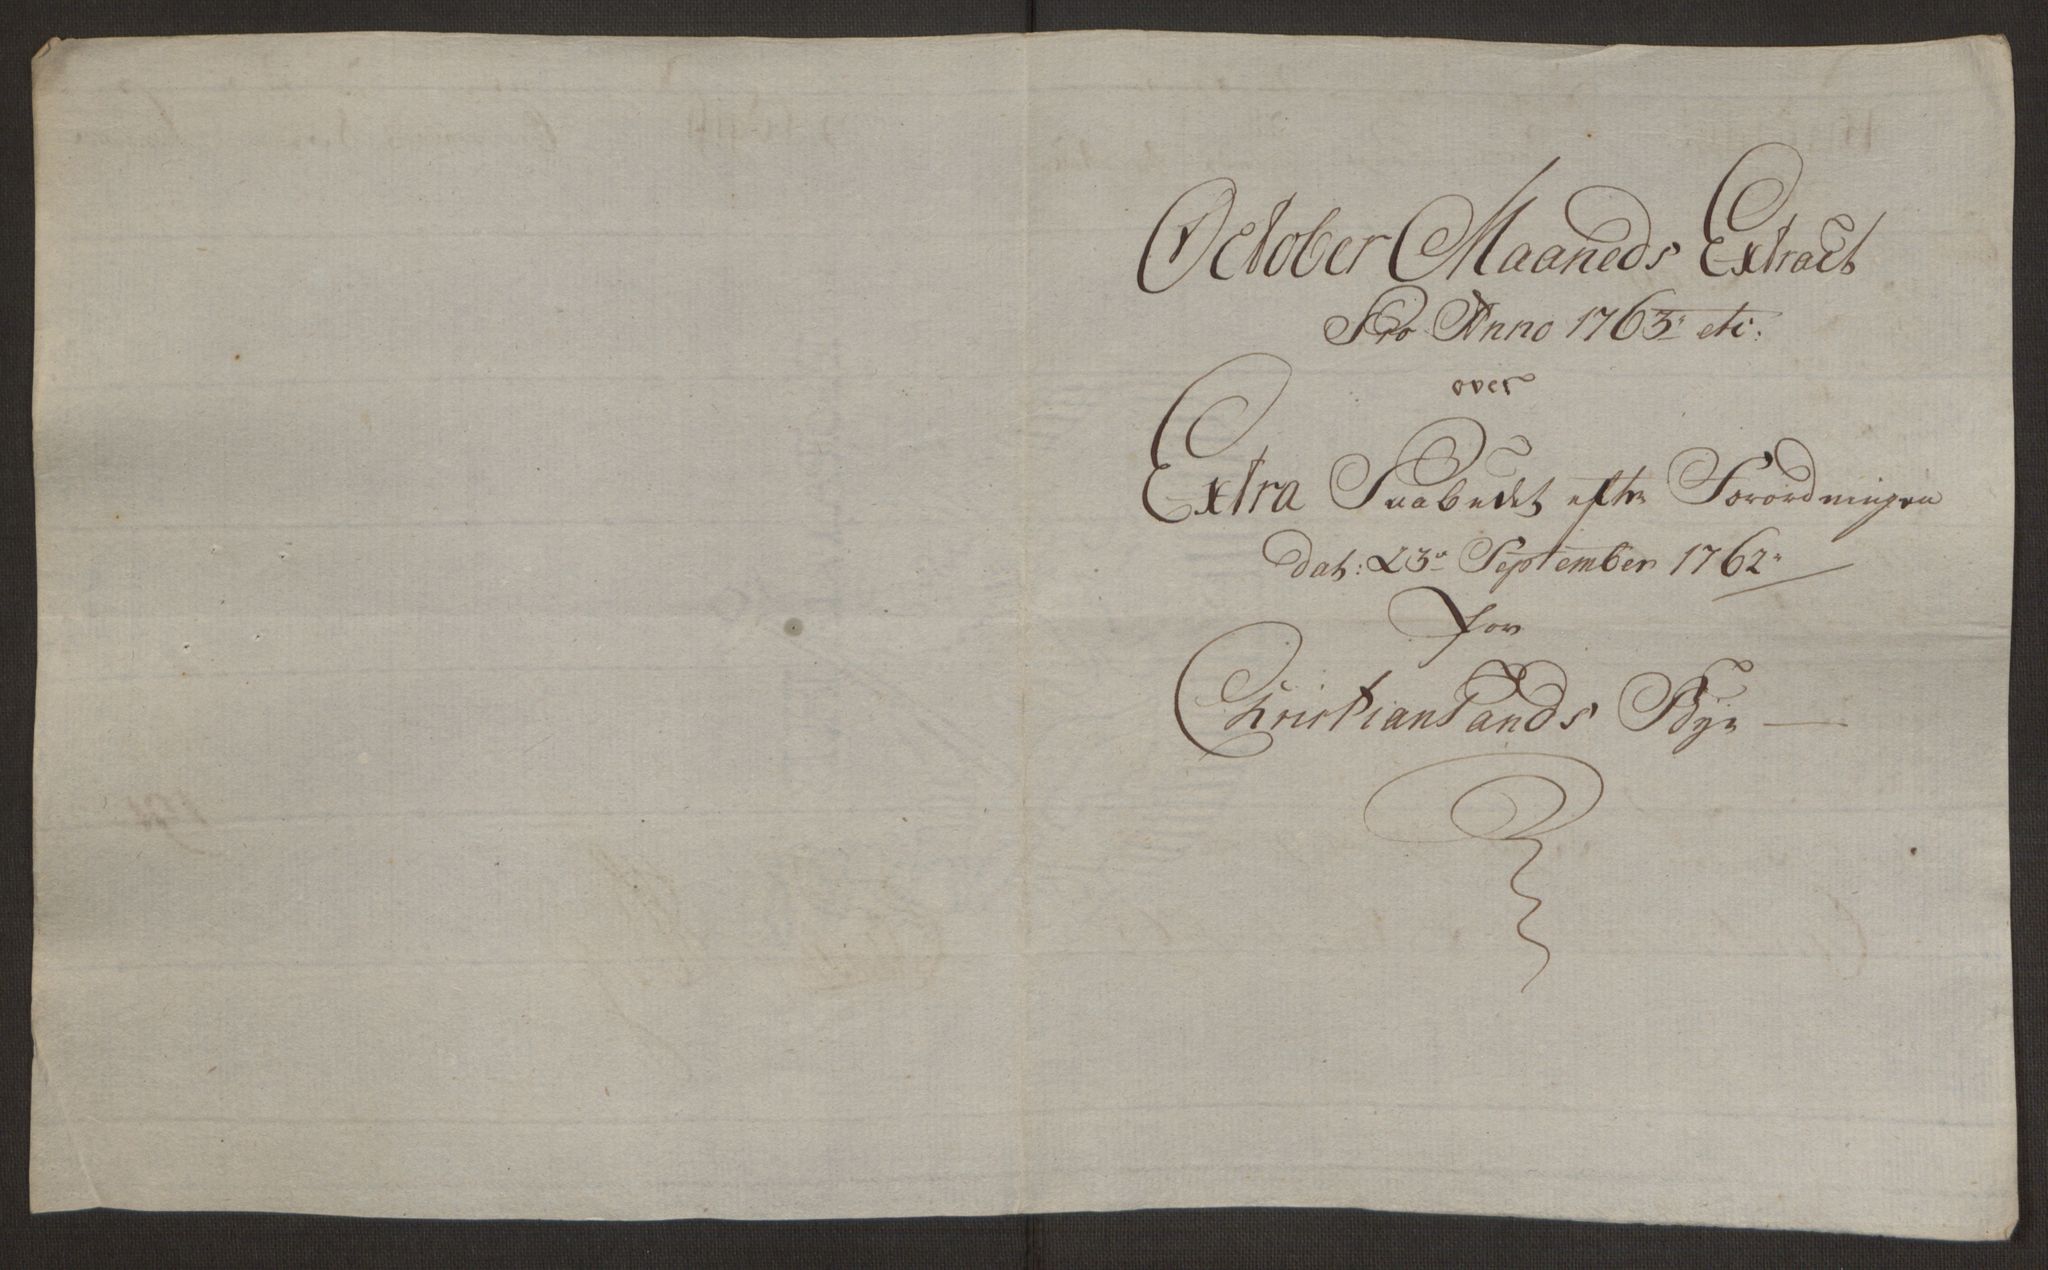 October Maaneds Extract
Pro Anno 1763 etc:
over
Extra Paabudet efter Forordningen
dat: 23de September 1762
for
Christiansands Bye